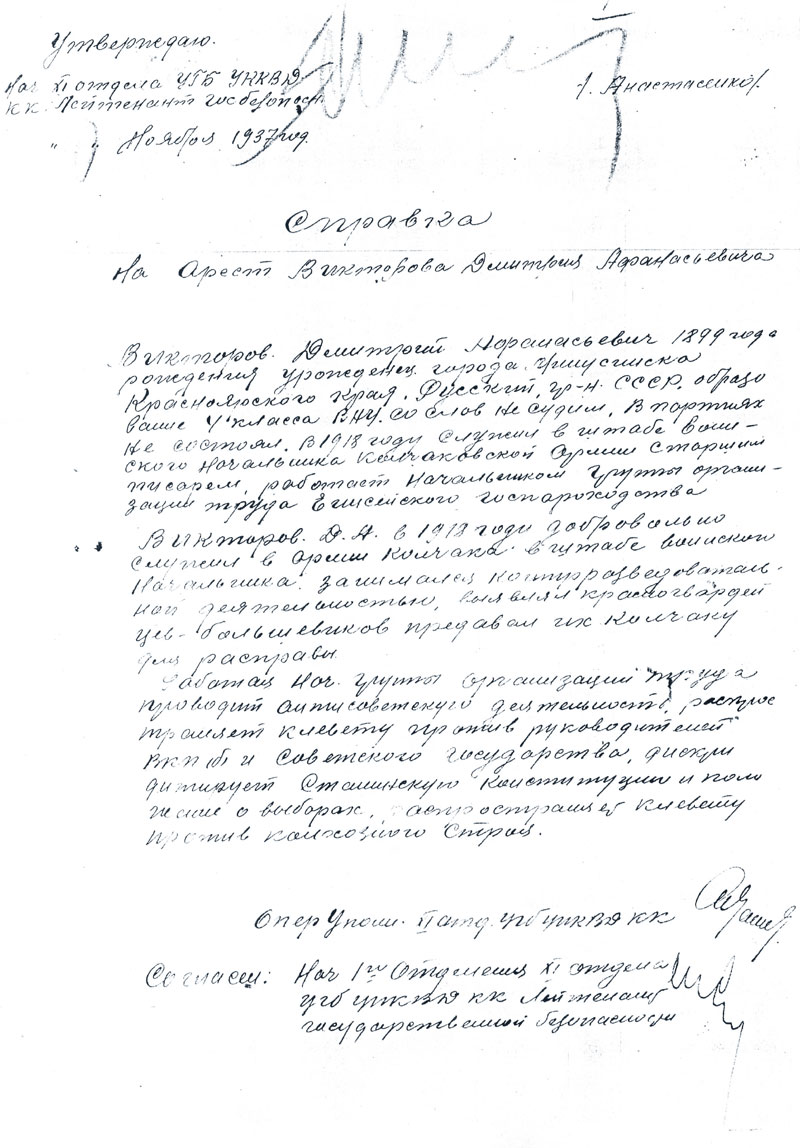 Утверждаю.
Нач XI отдела УГБ УНКВД
КК. Лейтенант госбезопасн. /. Анастасенко/.
" " Ноября 1937 год.
Справка
На Арест Викторова Дмитрия Афанасьевича
Викторов. Дмитрий Афанасьевич 1899 года
рождения урожденец города
Красноярского края, Русский, гр-н. СССР, образо
вание 4 класса ВНУ. со слов не судим, В партиях
не состоял, В 1918 году служил в штабе воин-
ского Начальника Колчаковской Армии Старшим
писарем, работает Начальником группы органи-
зации труда Енисейского Госпароходства
Викторов. Д. А. в 1918 году добровольно
служил в армии Колчака в штабе воинского
Начальника. занимался контрразведователь-
ной деятельностью, выявлял красногвардей
цев-большевиков предавал их Колчаку
для расправы.
Работая Нач. группы организации труда
проводит антисоветскую деятельность, распрос
траняет клевету против руководителей
ВКП/б/ и Советского государства, дискри
дитирует Сталинскую Конституцию и поло
жение о выборах, распространяет клевету
против колхозного Строя.
ОперУполн. II отд. УГБ УНКВД КК
Согласен: Нач 1го Отделения XI отдела
УГБ УНКВД КК Лейтенант
государственной безопасности